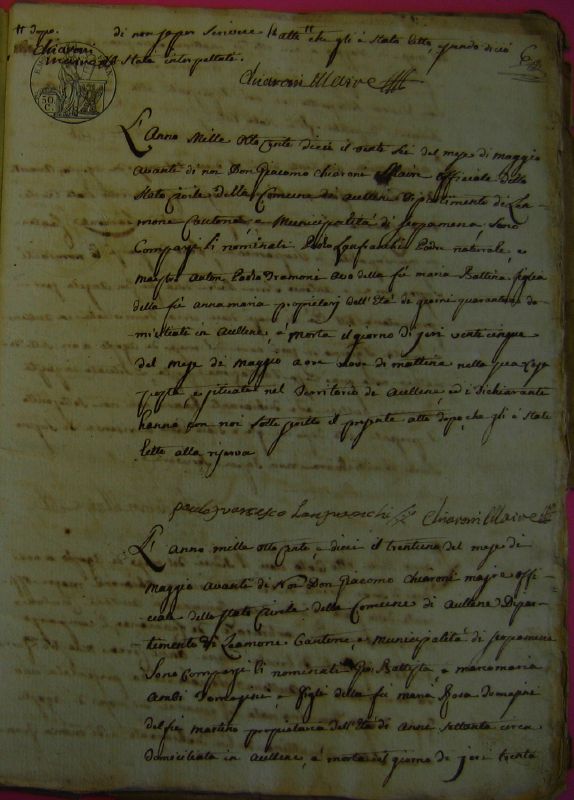 Dopo.
di non saper scrivere l'atto che gli è stato letto, quando dicio
Chiaroni
è stata interpellata.
Chiaroni Maire
50
C.
L'Anno Mille Otto cento dieci il vente sei del mese di maggio
avanti di noi Don Giacomo Chiaroni Maire offiziale dello
Stato Civile della Comune di Aullene Dipartimento di Lia-
mone Cantone, e Municipalità di Serpamena Sono
Comparsi li nominati Paolo Lanfranchi Padre naturale, e
Maestro Anton Tramoni Avo della fù Maria Battina figlia
della fù Annamaria proprietarj dell'Età di anni quaranta do-
miciliati in Aullene, è morta il giorno di jeri vente cinque
del mese di Maggio a ore nove di mattina nella sua casa
posta, e situata nel Territorio di Aullene, ed i dichiarante
hanno con noi sotto scritto il presente atto dopo, che gli è stato
letto alla riserva
Chiaroni Maire
L'anno mille otto cento, e dieci il trentuno del mese di
Maggio avanti di Noi Don Giacomo Chiaroni maire offi-
ciale dello Stato Civile della Comune di Aullene Dipar-
timento di Leamone, Cantone, e Municipalità di Serpamena
Sono Comparsi li nominati Gio Battista, e
figli della fù Maria Rosa
del fù Martino proprietaria dell'Età di Anni settanta circa
domiciliata in Aullene, è morta il giorno di jeri trenta